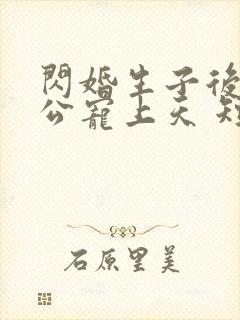 閃婚生子後
公寵上天 短
石原里美